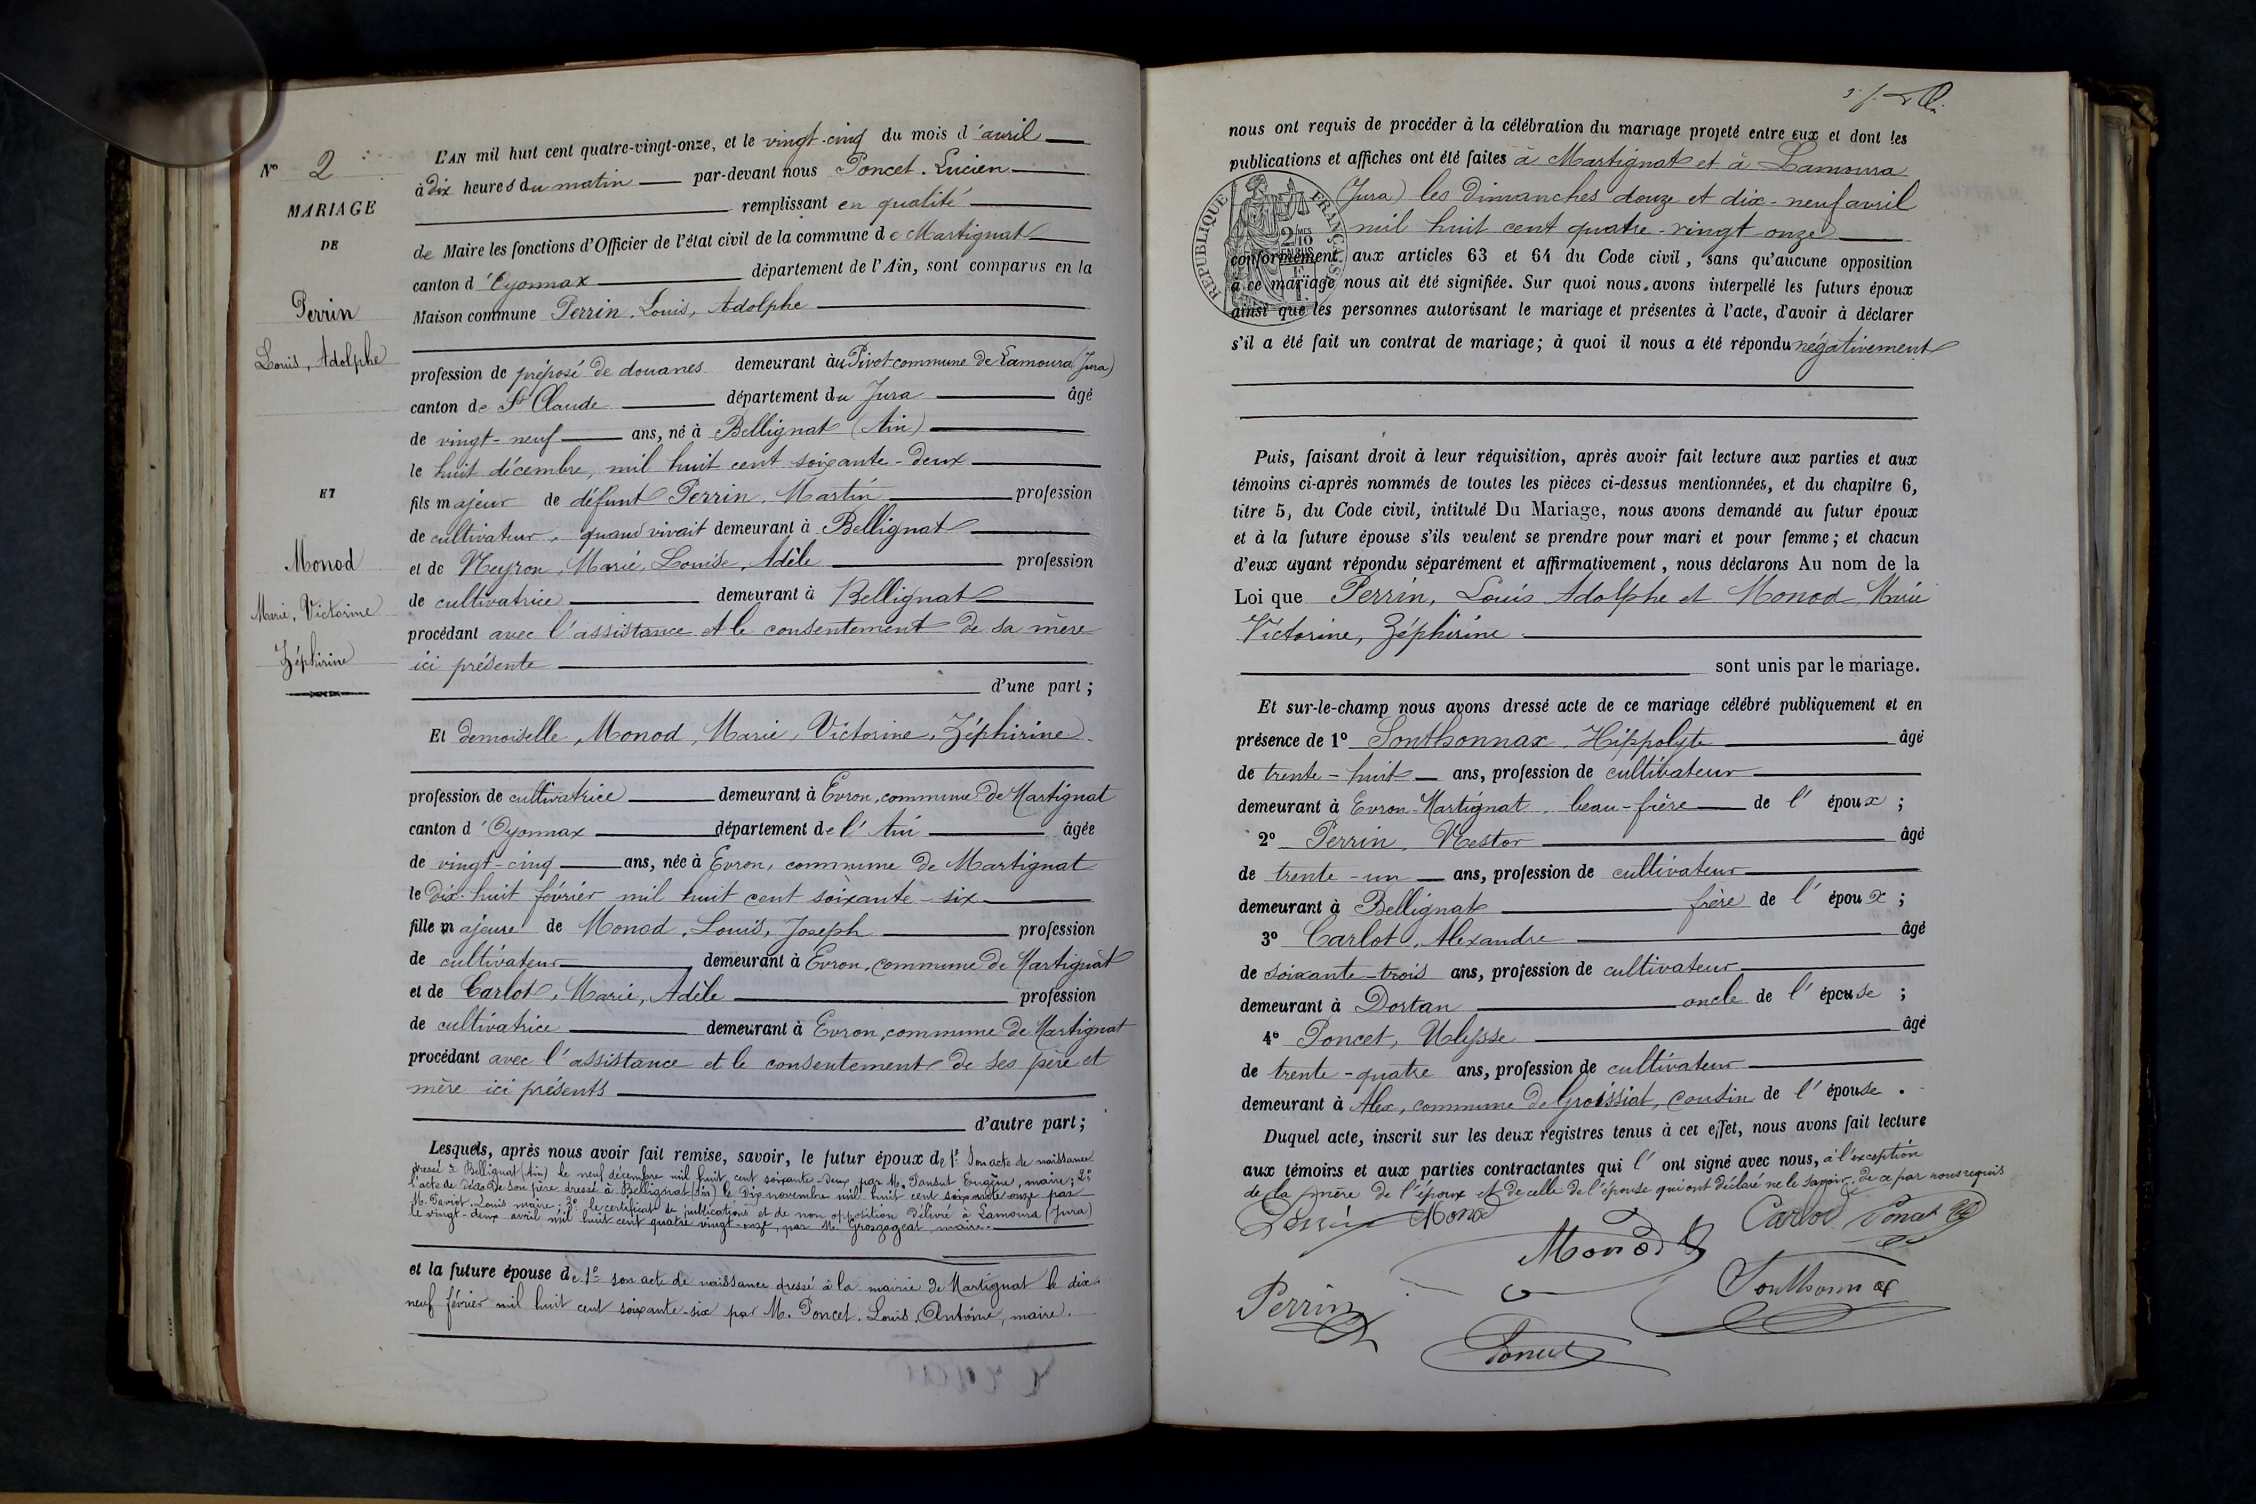 N° 2
MARIAGE
DE
Perrin
Louis, Adolphe
ET
Monod
Marie, Victorine
Zéphirine
L'AN mil huit cent quatre-vingt-onze, et le vingt-cinq du mois d'avril
à dix heures du matin par-devant nous Poncet. Lucien
remplissant en qualité
de Maire les fonctions d'Officier de l'état civil de la commune de Martignat
canton d'Oyonnax département de l'Ain, sont comparus en la
Maison commune Perrin, Louis, Adolphe
profession de préposé de douanes demeurant au Pivot commune de Lamoura (Jura)
canton de St Claude département du Jura âgé
de vingt-neuf ans, né à Bellignat (Ain)
le huit décembre, mil huit cent soixante-deux
fils majeur de défunt Perrin, Martin profession
de cultivateur, quand vivait demeurant à Bellignat
et de Neyron, Marie, Louise, Adèle profession
de cultivatrice demeurant à Bellignat
procédant avec l'assistance et le consentement de sa mère
ici présente
d'une part;
Et demoiselle, Monod, Marie, Victorine, Zéphirine
profession de cultivatrice demeurant à Evron, commune de Martignat
canton d'Oyonnax département de l'Ain âgée
de vingt-cinq ans, née à Evron, commune de Martignat
le dix-huit février mil huit cent soixante-six
fille majeure de Monod, Louis, Joseph profession
de cultivateur demeurant à Evron, commune de Martignat
et de Carlot, Marie, Adèle profession
de cultivatrice demeurant à Evron, commune de Martignat
procédant avec l'assistance et le consentement de ses père et
mère ici présents
d'autre part;
Lesquels, après nous avoir fait remise, savoir, le futur époux de 1° Son acte de naissance
dressé à Bellignat (Ain) le neuf décembre mil huit cent soixante-deux par M. Eugène, maire; 2°
l'acte de décès de son père dressé à Bellignat (Ain) le dix novembre mil huit cent soixante onze par
M. Louis maire; 3° le certificat de publications et de non opposition délivré à Lamoura (Jura)
le vingt-deux avril mil huit cent quatre vingt-onze, par M. Grosgogeat, maire.
et la future épouse de 1° son acte de naissance dressé à la mairie de Martignat le dix-
neuf février mil huit cent soixante-six par M. Poncet. Louis. Antoine, maire.
nous ont requis de procéder à la célébration du mariage projeté entre eux et dont les
publications et affiches ont été faites à Martignat et à Lamoura
(Jura) les dimanches douze et dix-neuf avril
mil huit cent quatre-vingt-onze
RÉPUBLIQUE FRANÇAISE
conformément aux articles 63 et 64 du Code civil, sans qu'aucune opposition
à ce mariage nous ait été signifiée. Sur quoi nous avons interpellé les futurs époux
ainsi que les personnes autorisant le mariage et présentes à l'acte, d'avoir à déclarer
s'il a été fait un contrat de mariage; à quoi il nous a été répondu négativement
Puis, faisant droit à leur réquisition, après avoir fait lecture aux parties et aux
témoins ci-après nommés de toutes les pièces ci-dessus mentionnées, et du chapitre 6,
titre 5, du Code civil, intitulé Du Mariage, nous avons demandé au futur époux
et à la future épouse s'ils veulent se prendre pour mari et pour femme; et chacun
d'eux ayant répondu séparément et affirmativement, nous déclarons Au nom de la
Loi que Perrin, Louis Adolphe et Monod Marie
Victorine, Zéphirine
sont unis par le mariage.
Et sur-le-champ nous avons dressé acte de ce mariage célébré publiquement et en
présence de 1° Sonthonnax, Hippolyte âgé
de trente-huit ans, profession de cultivateur
demeurant à Evron-Martignat, beau-frère de l'époux;
2° Perrin, Nestor âgé
de trente-un ans, profession de cultivateur
demeurant à Bellignat frère de l'époux;
3° Carlot, Alexandre âgé
de soixante-trois ans, profession de cultivateur
demeurant à Dortan oncle de l'épouse;
4° Poncet, Ulysse âgé
de trente-quatre ans, profession de cultivateur
demeurant à Alex, commune de Groissiat, cousin de l'épouse.
Duquel acte, inscrit sur les deux registres tenus à cet effet, nous avons fait lecture
aux témoins et aux parties contractantes qui l'ont signé avec nous, à l'exception
de la mère de l'époux et de celle de l'épouse qui ont déclaré ne le savoir, de ce par nous requis
Perrin Monod Carlod Poncet
Monod
Perrin Sonthonnax
Poncet